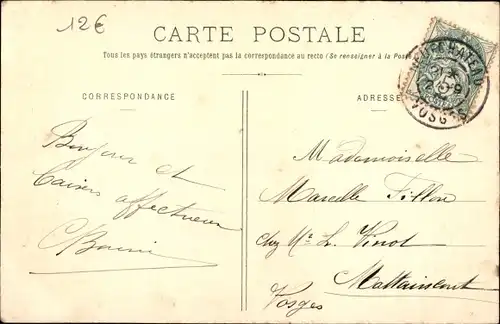 12€
CARTE POSTALE
Tous les pays étrangers n'acceptent pas la correspondance au recto (Se renseigner à la Poste)
CORRESPONDANCE
ADRESSE
NEUFCHATEAU
VOSGES
Bonjour et
baisers
affectueux
Mademoiselle
Marcelle Fillon
chez Mr. L. Vinot
Mattaincourt
Vosges